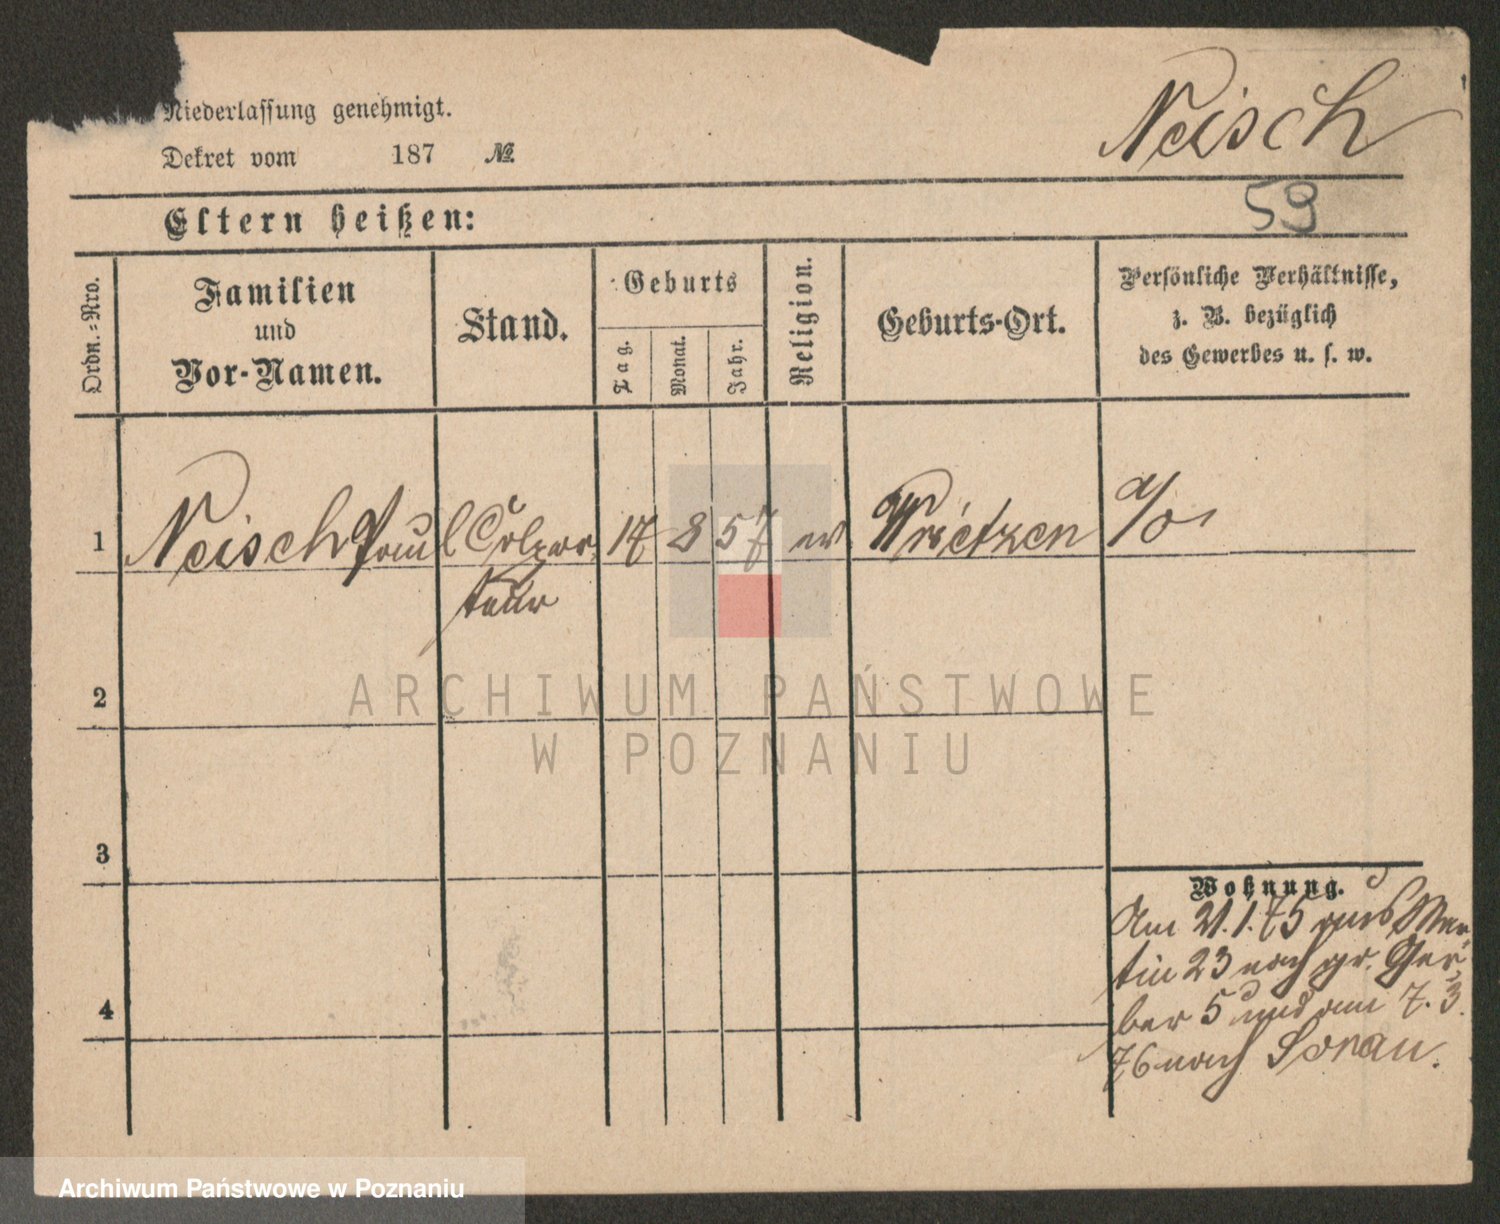 Niederlassung genehmigt.
Neisch
Dekret vom 187 №
59
Eltern heißen:
Ordn.-Nro.
Familien
und
Vor-Namen.
Stand.
Geburts
Tag.
Monat.
Jahr.
Religion.
Geburts-Ort.
Persönliche Verhältnisse,
z. B. bezüglich
des Gewerbes u. s. w.
1 Neisch Paul Colpor 17 8 57 ev Wrietzen %
teur
2
ARCHIWUM PAŃSTWOWE
W POZNANIU
3
Wohnung.
Am 21.1.75 aus Mar
tin 23 nach gr. Ger
4
ber 5 und am 7. 3.
76 nach Sorau.
Archiwum Państwowe w Poznaniu